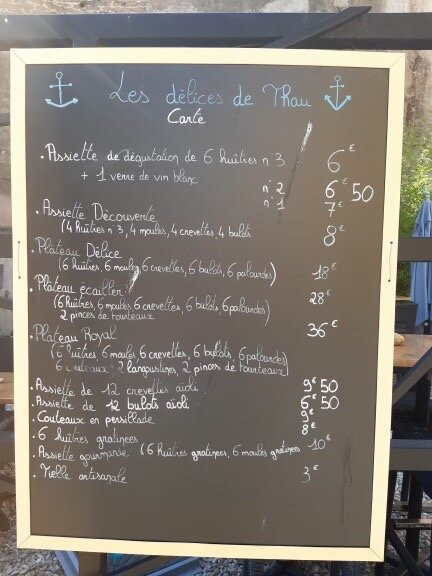 Les délices de Thau
Carte
. Assiette de dégustation de 6 huîtres n°3 6€
+ 1 verre de vin blanc
n°2 6€50
n°1 7€
. Assiette Découverte 8€
(4 huîtres n°3, 4 moules, 4 crevettes, 4 bulots
. Plateau Délice 18€
(6 huîtres, 6 moules, 6 crevettes, 6 bulots, 6 palourdes)
. Plateau écailler 28€
(6 huîtres, 6 moules, 6 crevettes, 6 bulots, 6 palourdes)
2 pinces de tourteaux
. Plateau Royal 36€
(6 huîtres 6 moules, 6 crevettes, 6 bulots, 6 palourdes)
6 couteaux, 2 langoustines, 2 pinces de tourteaux)
. Assiette de 12 crevettes aïoli 9€50
. Assiette de 12 bulots aïoli 6€50
. Couteaux en persillade 9€
. 6 huîtres gratinées 8€
. Assiette gourmande (6 huîtres gratinées, 6 moules gratinées 10€
. Tielle artisanale 3€